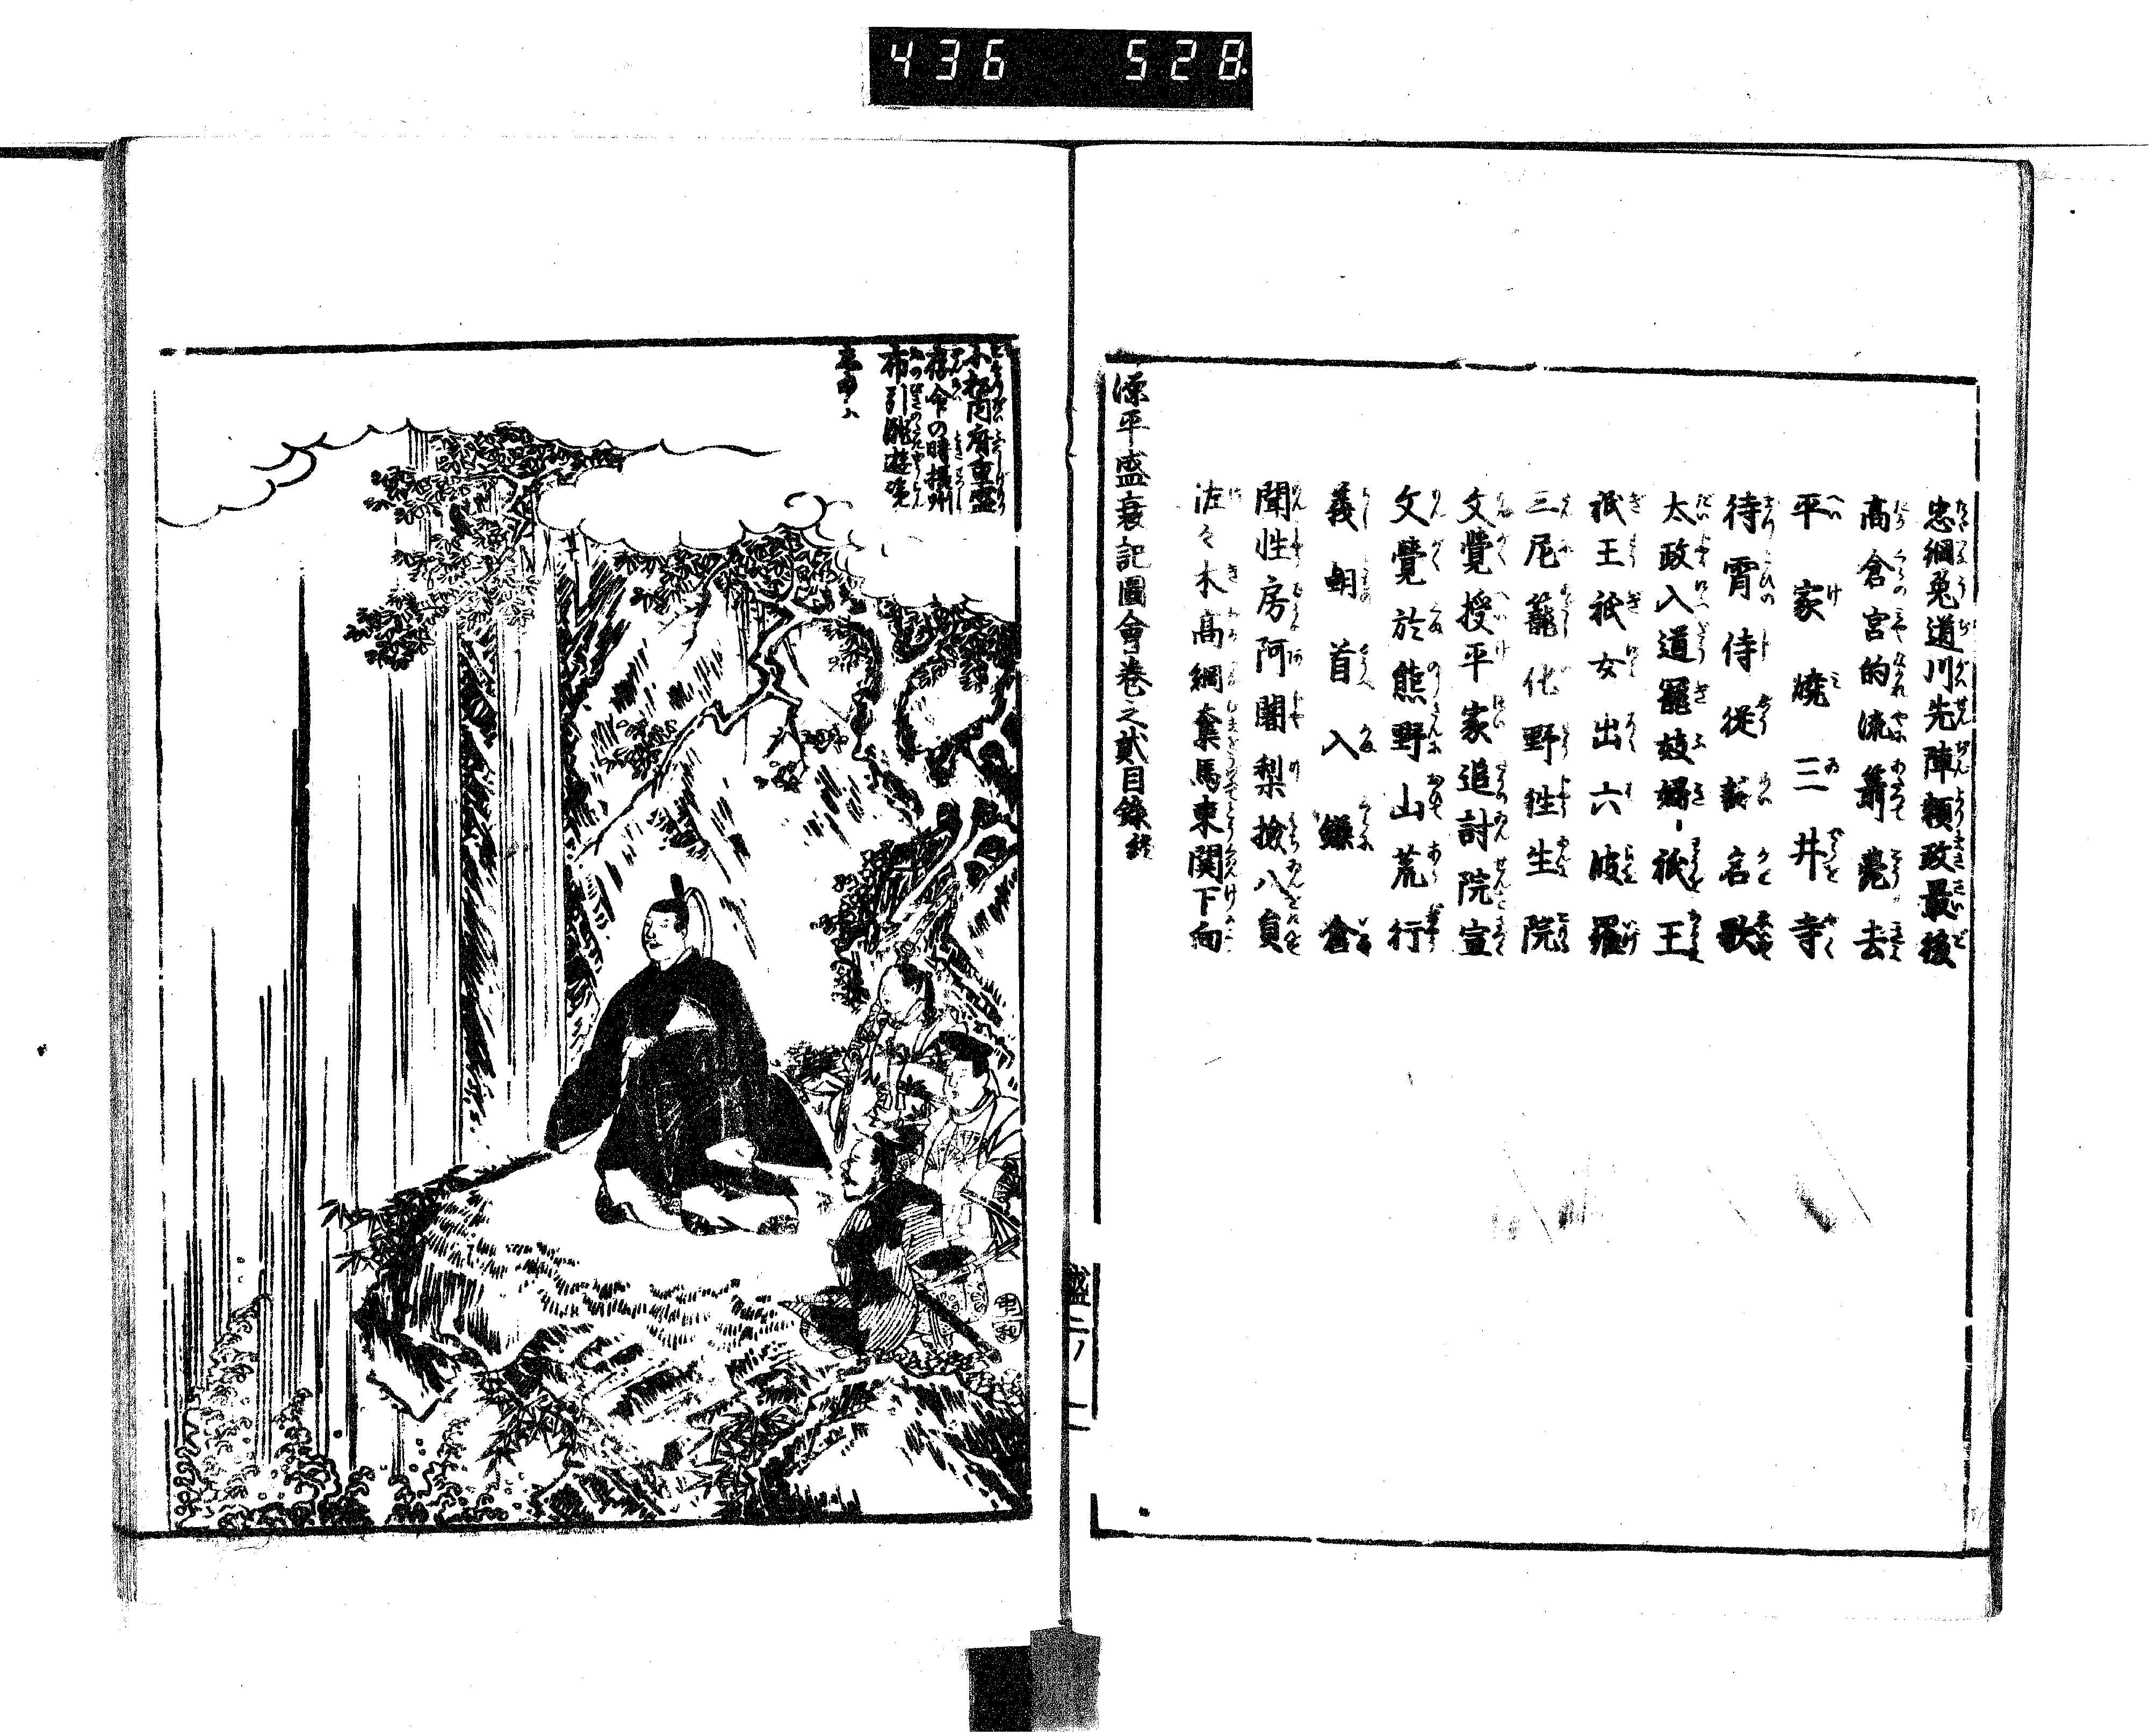 436 528
忠綱兎道川先陣頼政最後
高倉宮的流箭薨去
平家焼三井寺
待宵侍従謌名歌
太政入道寵妓婦祇王
祇王祇女出六波羅
三尼籠化野往生院
文覺授平家追討院宣
文覺於熊野山荒行
義朝首入鎌倉
聞性房阿闍梨撿八負
佐々木高綱奪馬東関下向
源平盛衰記圖會巻之貳目録終
盛二ノ二
小松内府重盛
存命の時摂州
布引瀧遊覧